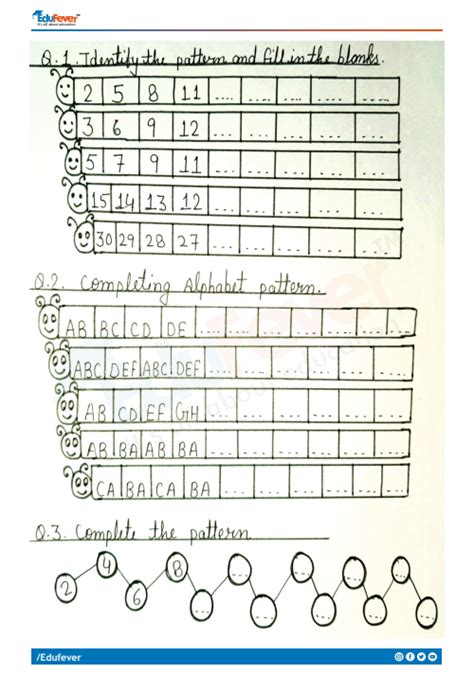 EduFever
It's all about education
Q.1. Identify the pattern and fill in the blanks.
2 5 8 11 .... .... .... .... ....
3 6 9 12 .... .... .... .... ....
5 7 9 11 .... .... .... .... ....
15 14 13 12 .... .... .... .... ....
30 29 28 27 .... .... .... .... ....
Q.2. Completing Alphabet pattern.
AB BC CD DE .... .... .... .... .... ....
ABC DEF ABC DEF .... .... .... .... ....
AB CD EF GH .... .... .... .... ....
AB BA AB BA .... .... .... .... ....
CA BA CA BA .... .... .... .... ....
Q.3. Complete the pattern
2 4 6 8 ... ... ... ... ... ... ... ...
/Edufever